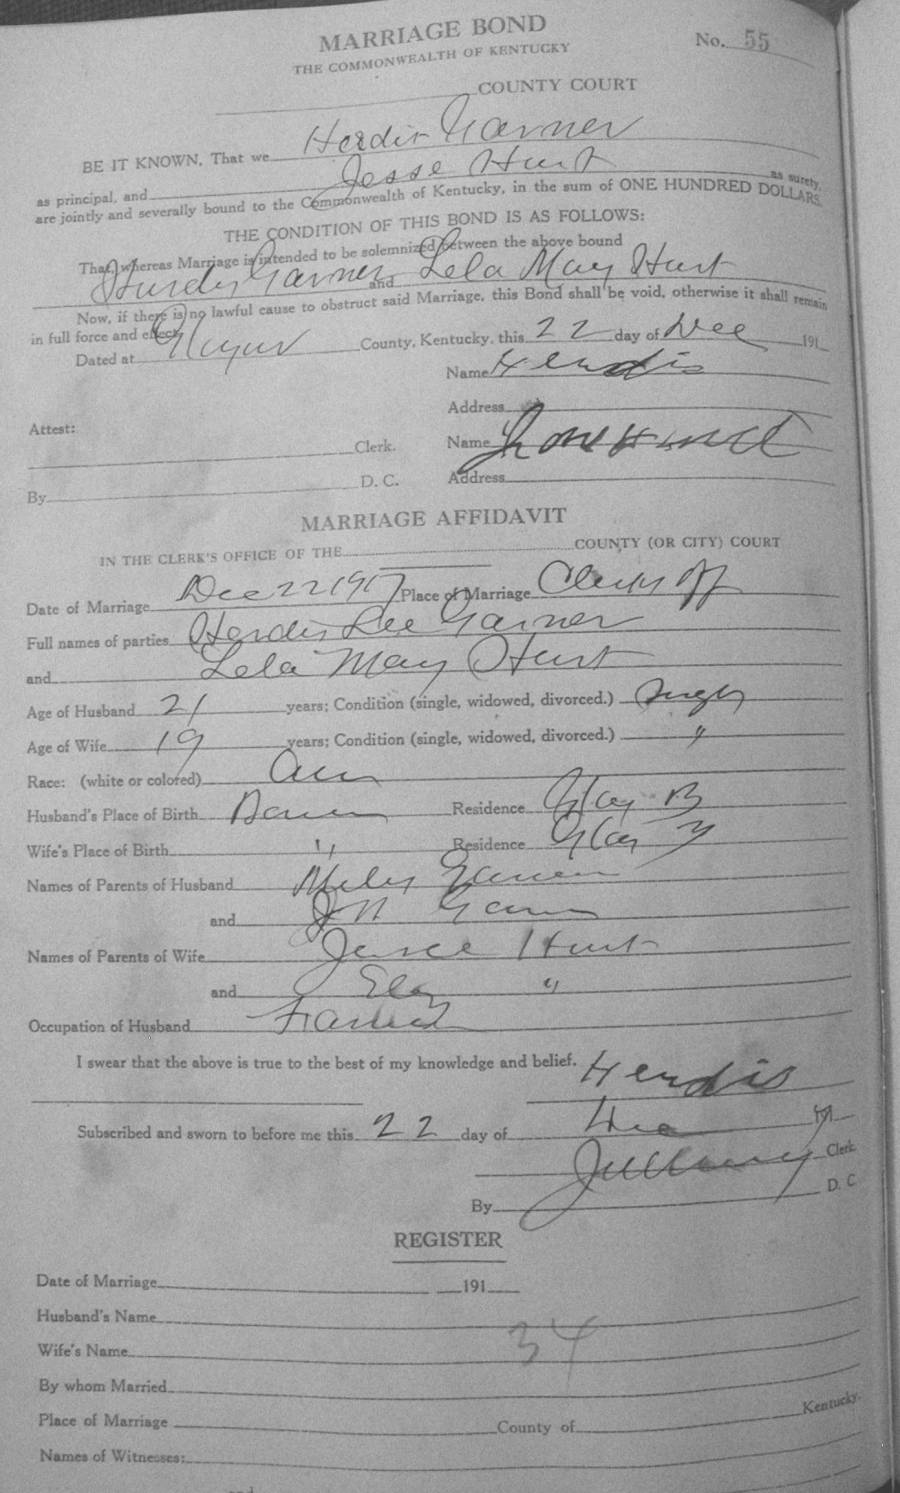 MARRIAGE BOND
No. 55
THE COMMONWEALTH OF KENTUCKY
COUNTY COURT
BE IT KNOWN, That we Herdis Garner
as principal, and Jesse Hurt as surety,
are jointly and severally bound to the Commonwealth of Kentucky, in the sum of ONE HUNDRED DOLLARS.
THE CONDITION OF THIS BOND IS AS FOLLOWS:
That, whereas Marriage is intended to be solemnized between the above bound
Hurdis Garner and Lela May Hurt
Now, if there is no lawful cause to obstruct said Marriage, this Bond shall be void, otherwise it shall remain
in full force and effect.
Dated at County, Kentucky, this 22 day of Dec 191
Name Herdis
Address
Attest:
Clerk.
Name
By D. C.
Address
MARRIAGE AFFIDAVIT
IN THE CLERK'S OFFICE OF THE COUNTY (OR CITY) COURT
Date of Marriage Dec 22 1917 Place of Marriage Clerks Off
Full names of parties Herdis Lee Garner
and Lela May Hurt
Age of Husband 21 years; Condition (single, widowed, divorced.) Single
Age of Wife 19 years; Condition (single, widowed, divorced.) "
Race: (white or colored)
Husband's Place of Birth Residence
Wife's Place of Birth " Residence
Names of Parents of Husband Garner
and Garner
Names of Parents of Wife Jesse Hurt
and "
Occupation of Husband Farmer
I swear that the above is true to the best of my knowledge and belief.
Herdis
Subscribed and sworn to before me this 22 day of Dec
Clerk
By D. C
REGISTER
Date of Marriage 191
Husband's Name
Wife's Name 34
By whom Married
Place of Marriage County of Kentucky.
Names of Witnesses:
and